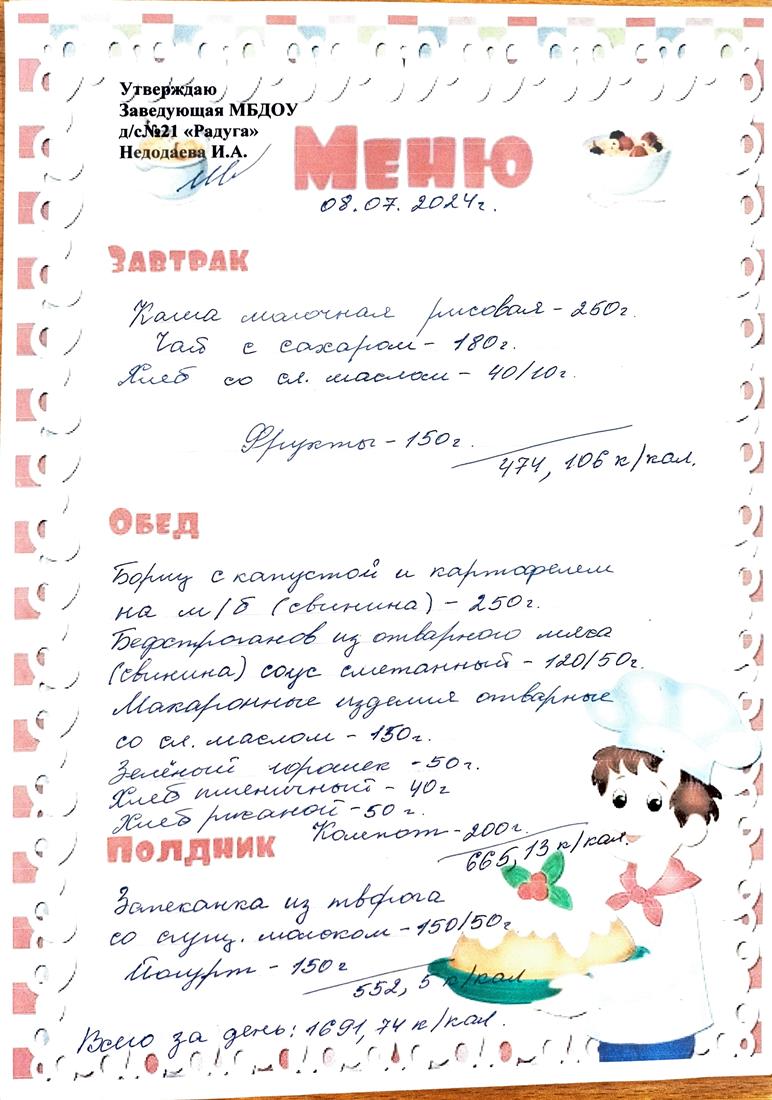 Утверждаю
Заведующая МБДОУ
д/с№21 «Радуга»
Недодаева И.А.
Меню
08.07.2024г.
Завтрак
Каша молочная рисовая - 260г.
Чай с сахаром - 180г.
Хлеб со сл. маслом - 40/10г.
Фрукты - 150г.
474, 106 к/кал.
Обед
Борщ с капустой и картофелем
на м/б (свинина) - 250г.
Бефстроганов из отварного мяса
(свинина) соус сметанный - 120/50г.
Макаронные изделия отварные
со сл. маслом - 150г.
Зелёный горошек - 50г.
Хлеб пшеничный - 40г
Хлеб ржаной - 50г.
Компот - 200г.
665, 13 к/кал.
Полдник
Запеканка из творога
со сгущ. молоком - 150/50г
Йогурт - 150г
552, 5 к/кал
Всего за день: 1691, 74 к/кал.